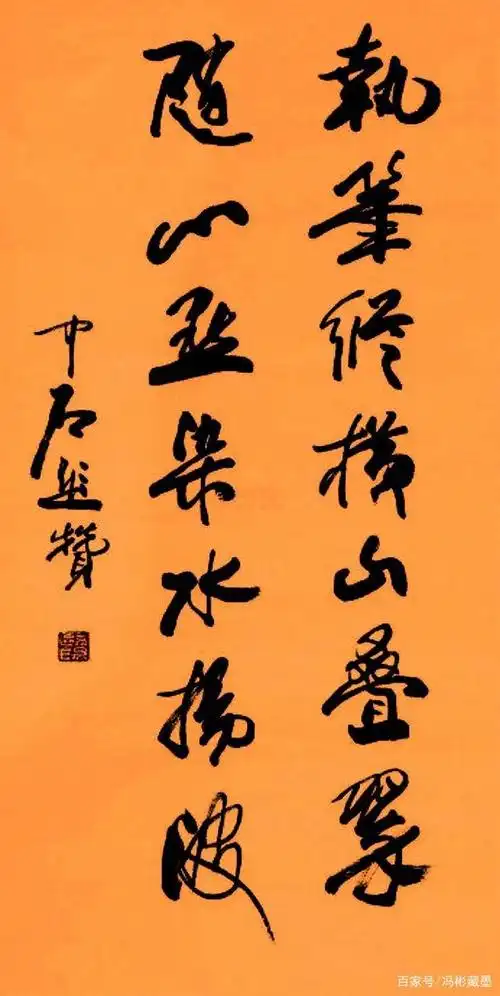 執筆縱橫山疊翠
隨心點染水揚波
中石題贊
百家号/冯彬藏墨